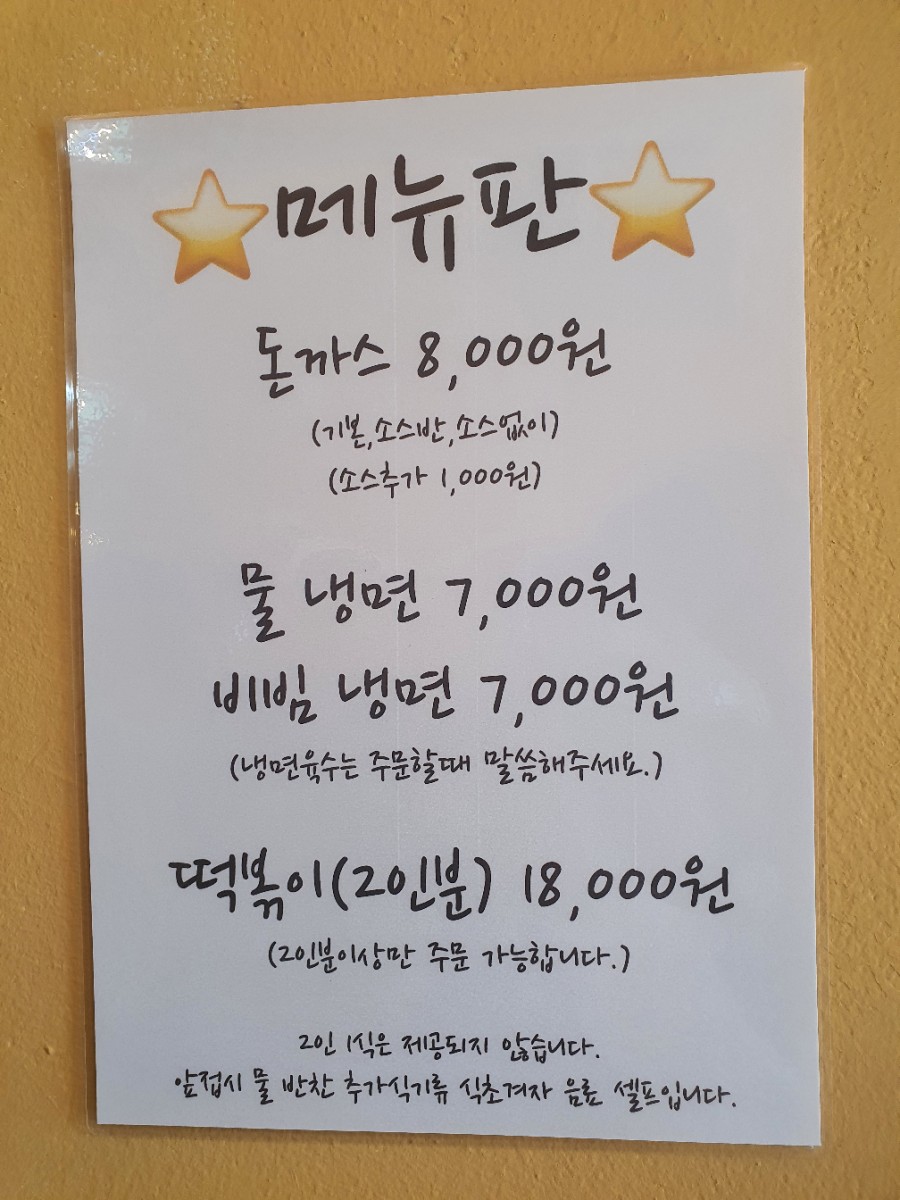 메뉴판
돈까스 8,000원
(기본,소스반,소스없이)
(소스추가 1,000원)
물 냉면 7,000원
비빔 냉면 7,000원
(냉면육수는 주문할때 말씀해주세요.)
떡볶이(2인분) 18,000원
(2인분이상만 주문 가능합니다.)
2인 1식은 제공되지 않습니다.
앞접시 물 반찬 추가식기류 식초겨자 음료 셀프입니다.